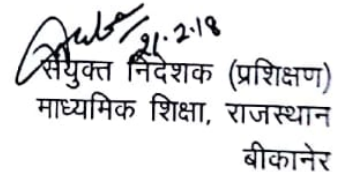 21.2.18
संयुक्त निदेशक (प्रशिक्षण)
माध्यमिक शिक्षा, राजस्थान
बीकानेर